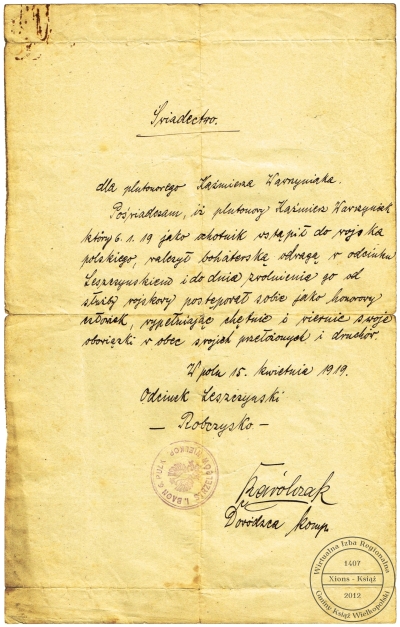 Świadectwo.
dla plutonowego Kaźmierza Warzyniaka.
Poświadczam, iż plutonowy Kaźmierz Warzyniak
który 6.1.19 jako ochotnik wstąpił do wojska
polskiego, walczył bohaterską odwagą w odcinku
Leszczynskiem i do dnia zwolnienia go od
służby wojskowy postępował sobie jako honorowy
człowiek, wypełniając chętnie i wiernie swoje
obowiązki w obec swojich przełożonych i druchów.
W polu 15. kwietnia 1919.
Odcinek Leszczynski
— Robczysko —
Karólczak
Dowódzca komp.
Wirtualna Izba Regionalna
1407
Xions - Książ
2012
Gminy Książ Wielkopolski